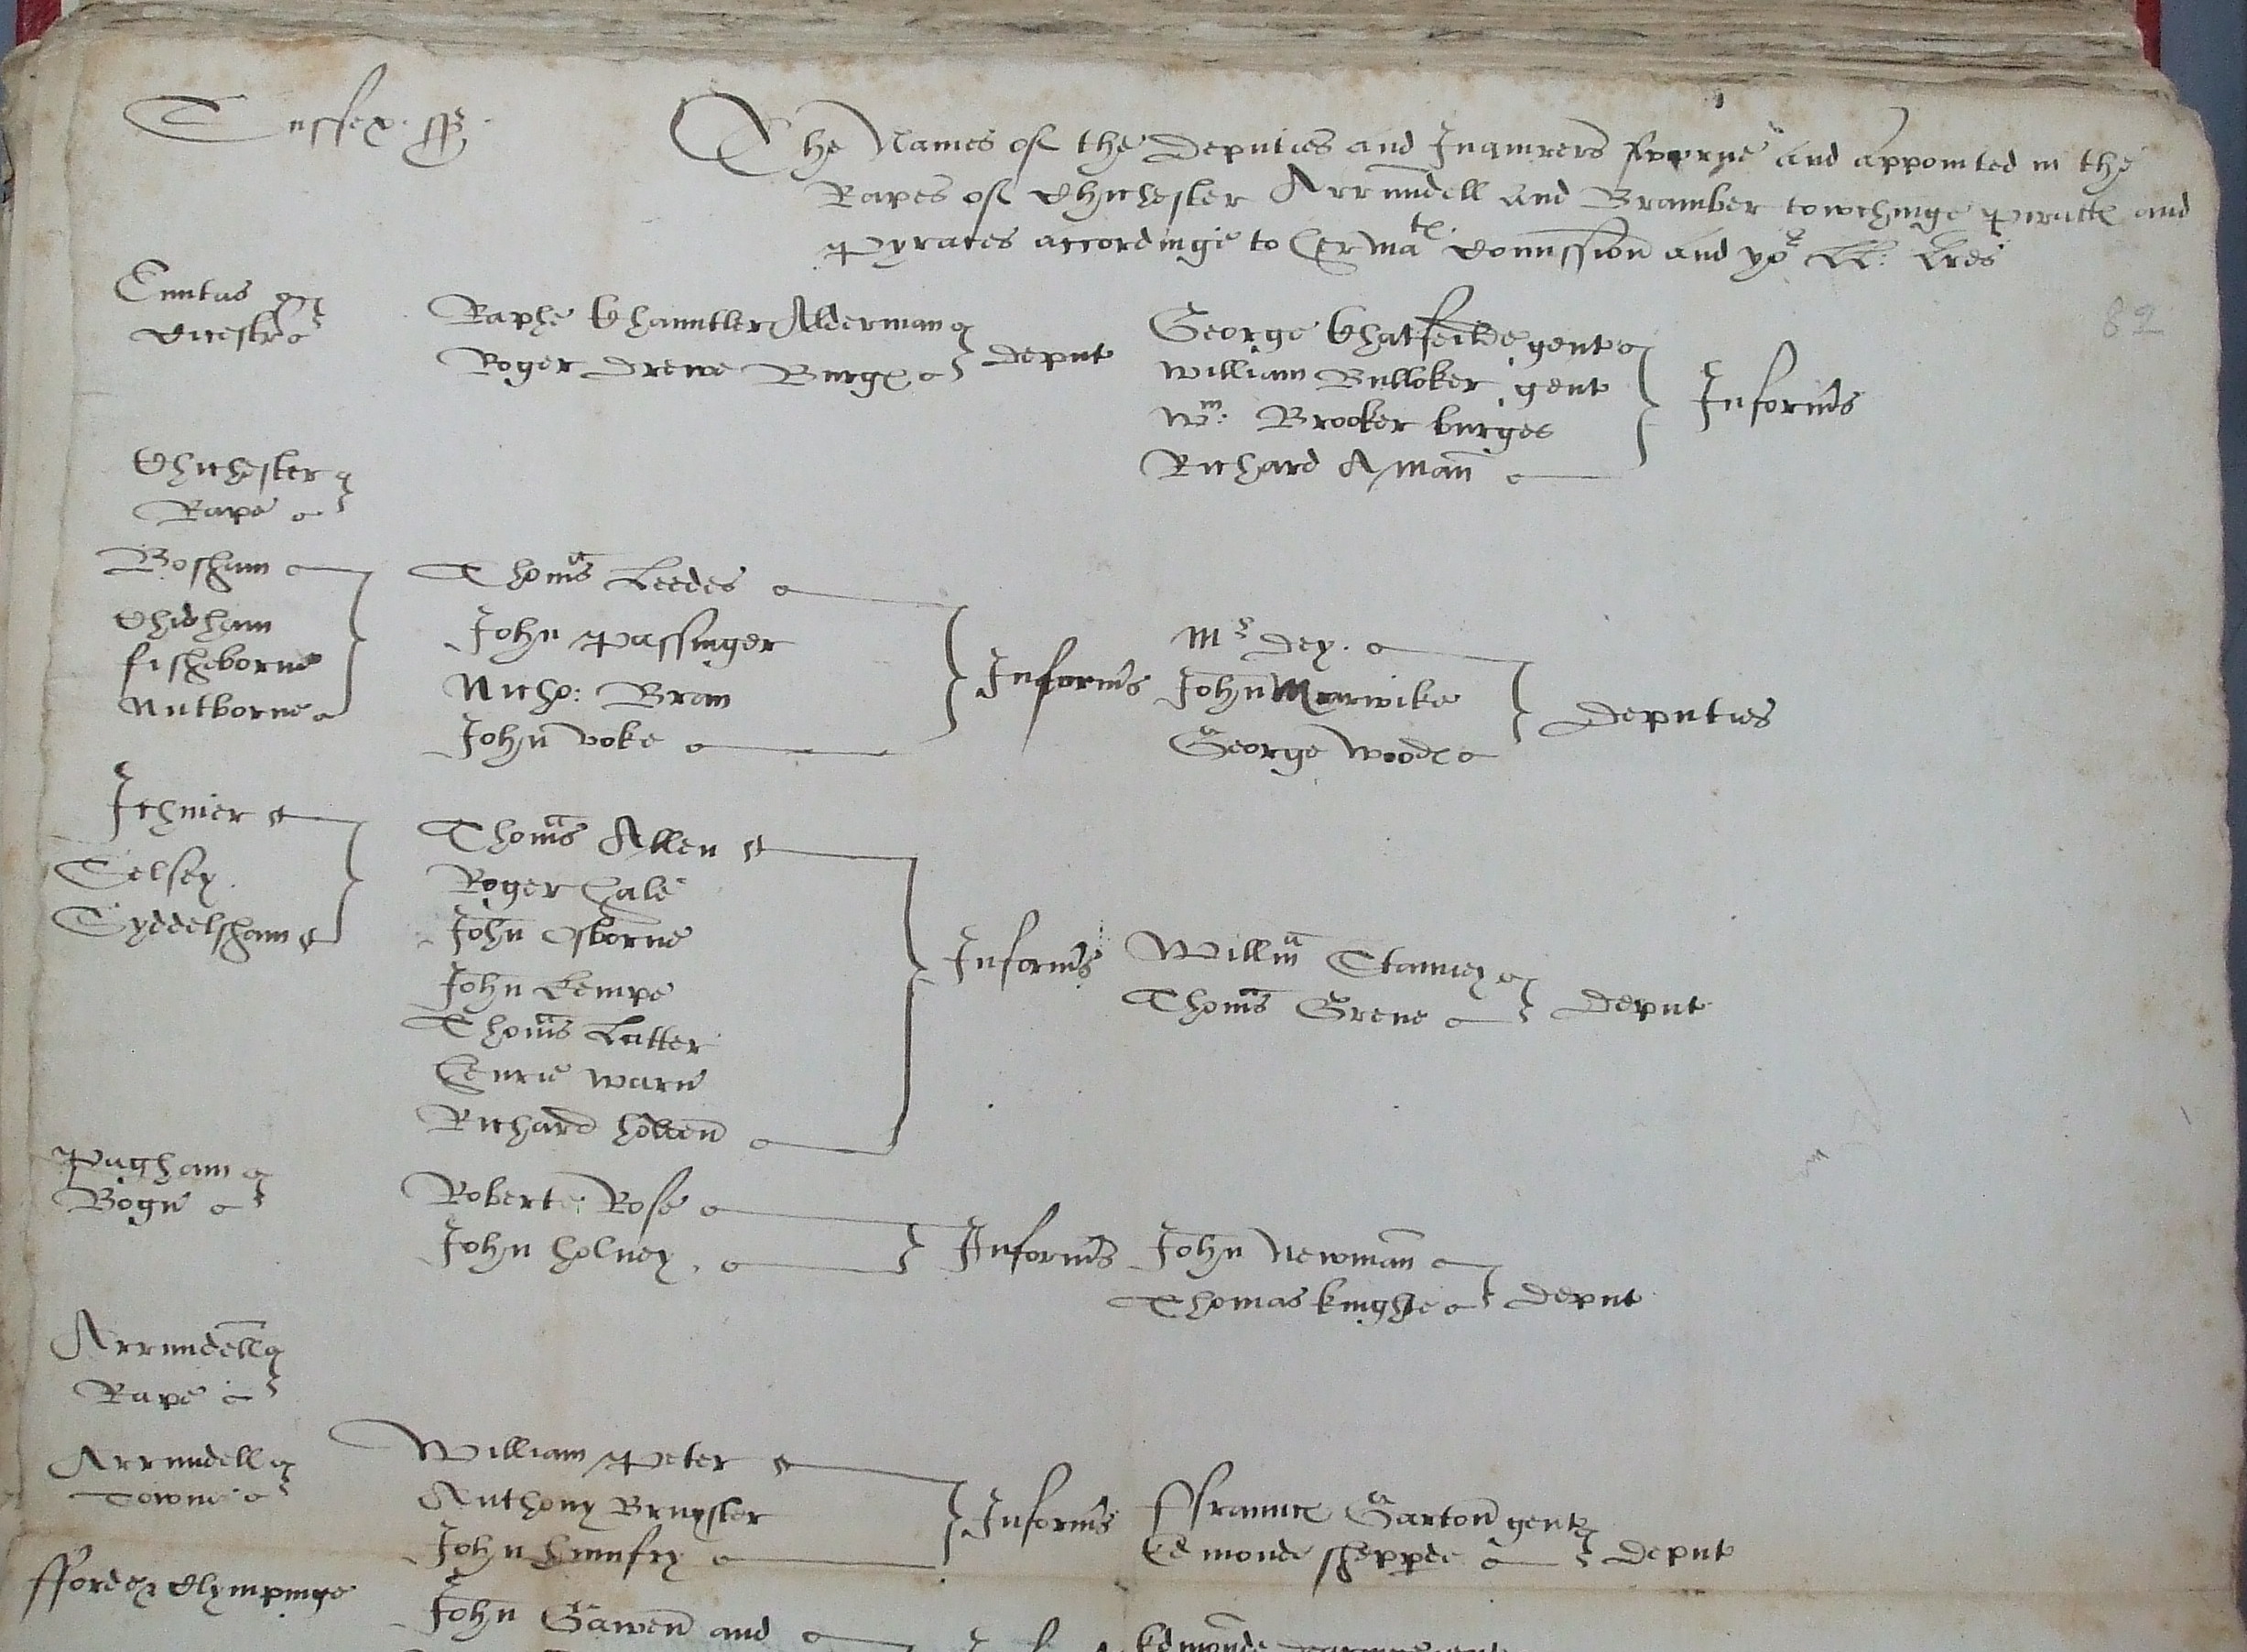 Sussex ss
The Names of the Deputies and Inquirers sworne and appointed in the
Rapes of Chichester Arrundell and Bramber towchinge Piratℓ and
Pyrates accordinge to her Matℓ Comission and yor LL: Lres
82
Civitas
Cicestre
Raphe Chauntler Alderman
Roger Drewe Burgℓ
deput
George Chatfeilde gent
William Bulloker gent
Wm: Brooker burges
Richard Aman
Informrs
Chichester
Rape
Bosham
Chidham
fisheborne
Nutborne
Thomas Leedes
John Passinger
Nicho: Bran
John Voke
Informrs
Mr Dey.
John Marwike
George Woodℓ
Deputies
Itchnier
Selsey.
Syddelsham
Thomas Allen
Roger hale
John Osborne
John Kempe
Thomas Lutter
Henrie Warn
Richard
Informrs
Willm Stanney
Thomas Grene
Deput
Pagham
Bogn
Roberte Rose
John holney.
Informrs
John Newman
Thomas knighte
Deput
Arrundell
Rape
Arrundell
Towne
William Peter
Anthony Bruyster
John humfry
Informrs
ffrauncℓ Garton gent
Edmonde Sheppde
Deput
fforde Clympinge
John Gawen and
Edmonde gent